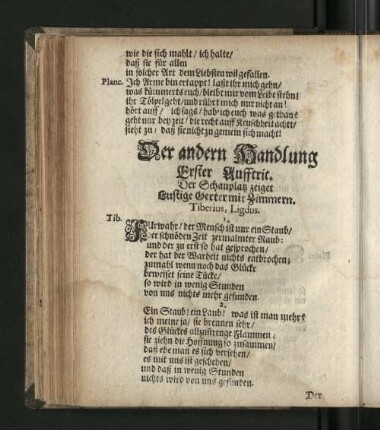 wie die sich mahlt / ich halte /
daß sie für allen
in solcher Art dem Liebsten wil gefallen.
Planc. Ich Arme bin ertappt! laßt ihr mich gehn /
was kümmerts euch / bleibt mir vom Leibe stehn!
ihr Tölpel geht / und rührt mich nur nicht an!
hört auff / ich sags / hab ich euch was gethan?
geht nur bey zeit / die recht auff Keuschheit acht /
sieht zu / daß sie nicht zu gemein sich macht!
Der andern Handlung
Erster Aufftrit.
Der Schauplatz zeiget
Lustige Gerter mit Zimmern.
Tiberius, Ligdus.
1.
Tib. Fürwahr / der Mensch ist nur ein Staub /
der schnöden Zeit zermalmter Raub:
und der zu erst so hat gesprochen /
der hat der Warheit nichts entbrochen;
zumahl wenn noch das Glücke
beweiset seine Tücke /
so wird in wenig Stunden
von uns nichts mehr gefunden.
2.
Ein Staub! ein Laub! was ist man mehr?
ich meine ja / sie brennen sehr /
des Glückes allzustrenge Flammen;
sie ziehn die Hoffnung so zusammen /
daß ehe man es sich versehen /
es mit uns ist geschehen /
und daß in wenig Stunden
nichts wird von uns gefunden.
Der